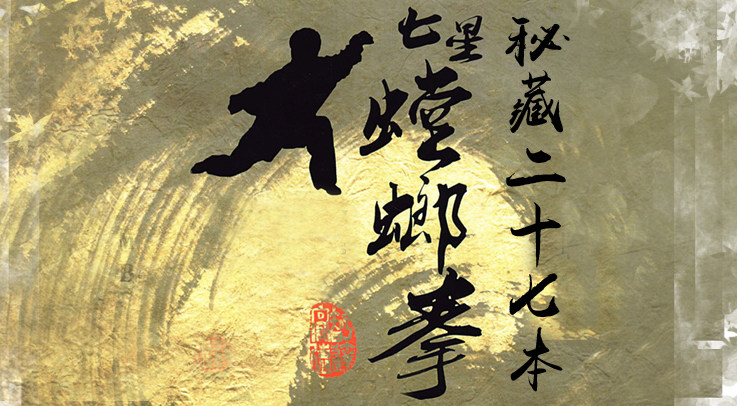 秘藏二十七本
七星
螳螂拳